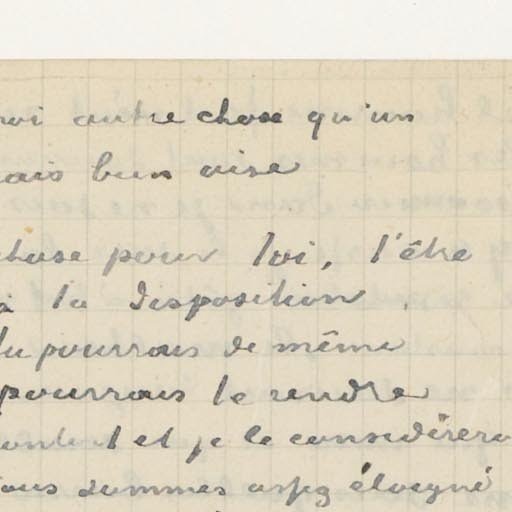 autre chose qu'un
ais bien aise
chose pour toi, l'être
à ta disposition
tu pourrais de même
pourrais te rendre
et je le considérera
ous sommes assez éloigné